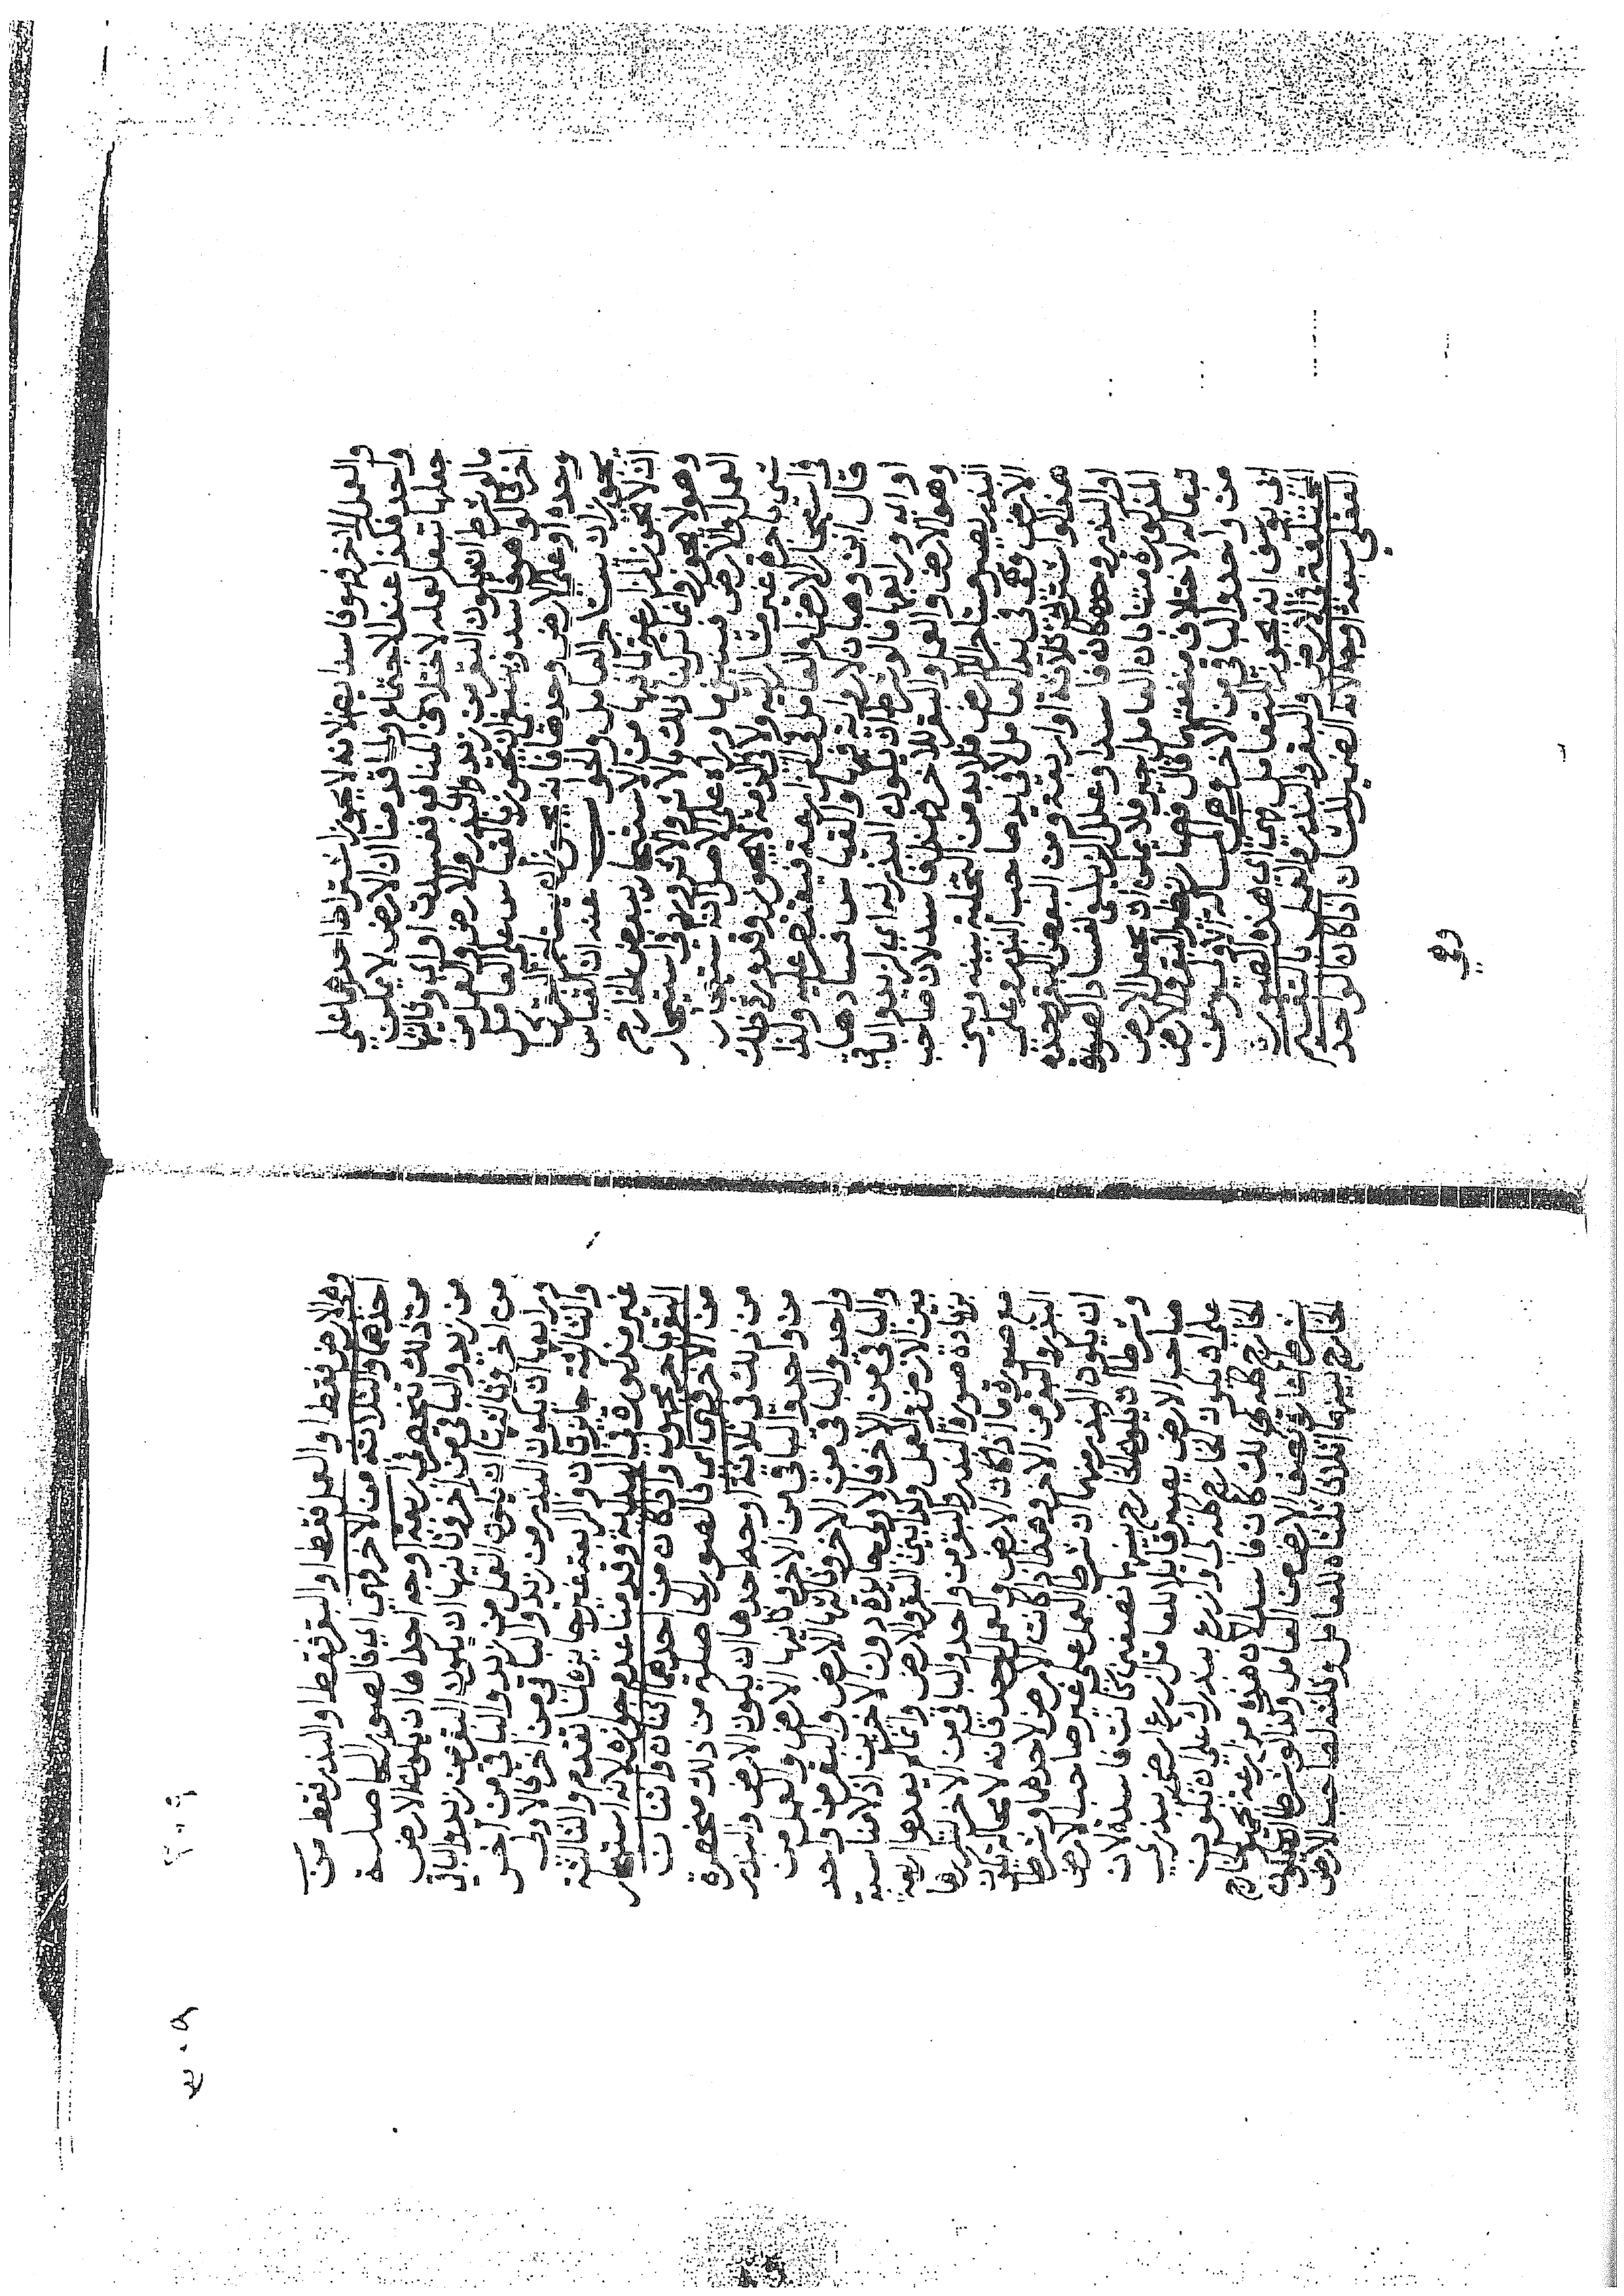 والعمل لاخر فهو فاسد ايضا لانه لا يجوز اشتراط احدهما على
واحد فكذا عند الاجتماع ولما قدمنا ان الارض لا يمكن
جعلها تبعا لعمله لاختلاف المنافع ففسدت وثالثها
ما لو شرط ان يكون البقر من زيد والبذر والارض والعمل من
اخر قالوا هو فاسد وينبغي ان يجوز بالقياس على العامل
وحده او على الارض وحدها فانه يجوز
يجوز ان يستاجر العامل والجواب عنه ان القياس
ان لا تجوز المزارعة لما فيها من الاستئجار ببعض الخارج
وهو لا يجوز وانما تركنا ذلك بالاثر والاثر ورد في استئجار
العامل او الارض فيبقى ما وراءه على الاصل
شيء باجرة غير مشار اليه ولا في الذمة لا يجوز وقد ورد ذلك
في استئجار الارض والعامل في المزارعة فيقتصر عليه ولذا
قال ابن وهبان لا رواية فيها والقياس فسادها
ورابعها ما لو شرط ان يكون البذر له اي لزيد والباقي
وهو الارض والعمل والبقر للاخر فهذا فاسد لان صاحب
البذر يصير مستاجرا للارض فلا بد من التخلية بينه وبين
الارض وهي في يد العامل لا في يد صاحب البذر وعلى
هذا لو اشترك ثلاثة او اربعة ومن البعض البقر وحده
او البذر وحده كان فاسدا وعلل الزيلعي لفساد الصورة
المذكورة متنا بان العامل اجير فلا يمكن ان تجعل الارض
تبعا له لاختلاف منفعتهما قال فصار نظير البقر والارض
من واحد والباقي من الاخر وهي المسالة الاولى وعن
ابي يوسف انه يجوز للتعامل وهي اي هذه الصور
المختلفة في الارض والبقر والبذر والعمل بالتقسيم
العقلي سبعة اوجه لانه الضمير للشان اذا كان الواحد
وهي
وهي الارض فقط او العمل فقط او البقر فقط او البذر فقط من
احدهما والثلاثة من الاخر فهي اي فالصور الحاصلة
من ذلك تنحصر في اربعة اوجه احدها ان يكون الارض
من زيد والباقي من اخر وثانيها ان يكون البقر من زيد والباقي
من اخر وثالثها ان يكون العمل من زيد والباقي من اخر
ورابعها ان يكون البذر من زيد والباقي من اخر فالاولى
والثالثة جائزتان والرابعة غير جائزة لما تقدم والثانية
غير مذكورة في الهداية وقدمنا عدم جوازه لانه استئجار
البقر باجر مجهول واذا كان من احدهما اثنان واثنان
من الاخر فهي اي فالصور الحاصلة من ذلك منحصرة
من ذلك في ثلاثة اوجه احدها ان يكون الارض والبذر
من واحد والباقي من الاخر وثانيها الارض والعمل من
واحد والباقي من الاخر وثالثها الارض والبقر من واحد
والباقي من الاخر فالاولى جائزة دون الاخريين اذ لا مناسبة
بين الارض والعمل وكذا بين البقر والارض وانما لم يعدها اربعة
بزيادة صورة البذر والبقر من واحد والباقي من الاخر
مع صورة ما اذا كان الارض والعمل لاحد فانه
البذر والبقر من الاخر وهذا اذا كانت الارض لاحدهما وشرط
ان يكون البذر منهما ان شرط العمل على غير صاحب الارض
وشرط ان يكون الخارج بينهما نصفين كانت فاسدة لان
صاحب الارض يصير قائلا للعامل ازرع ارضي ببذري
على ان يكون الخارج كله لي وازرع ببذرك على ان يكون
الخارج كله لك كان فاسدا لان هذه مزارعة بجميع الخارج
بشرط اعارة نصف الارض من العامل وكذا لو شرطا ان يكون
الخارج بينهما اثلاثا ثلثاه للعامل وثلثه لصاحب الارض